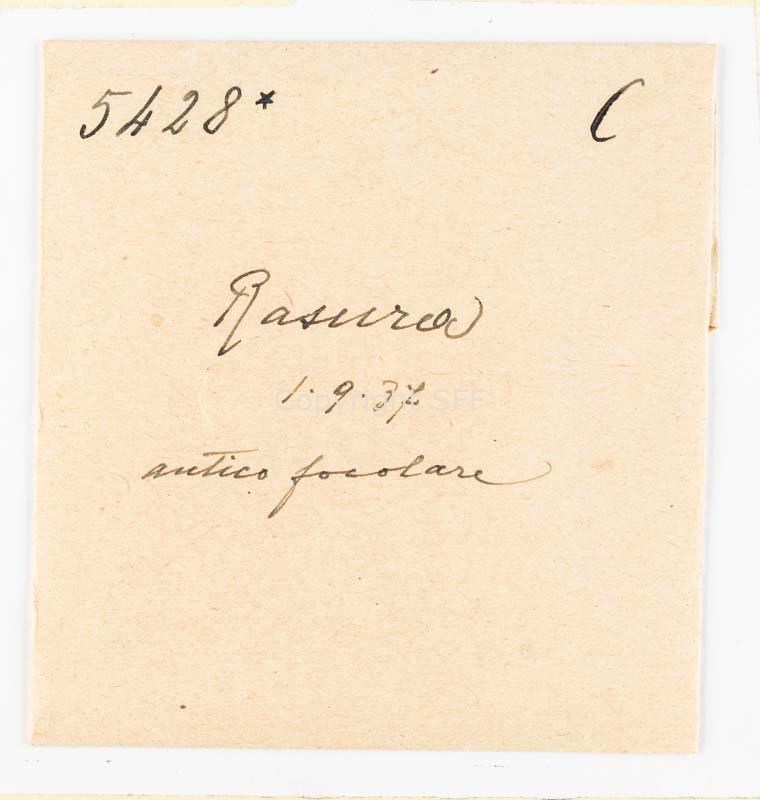 5428* C
Rasura
1.9.37
Copyright SFF
antico focolare